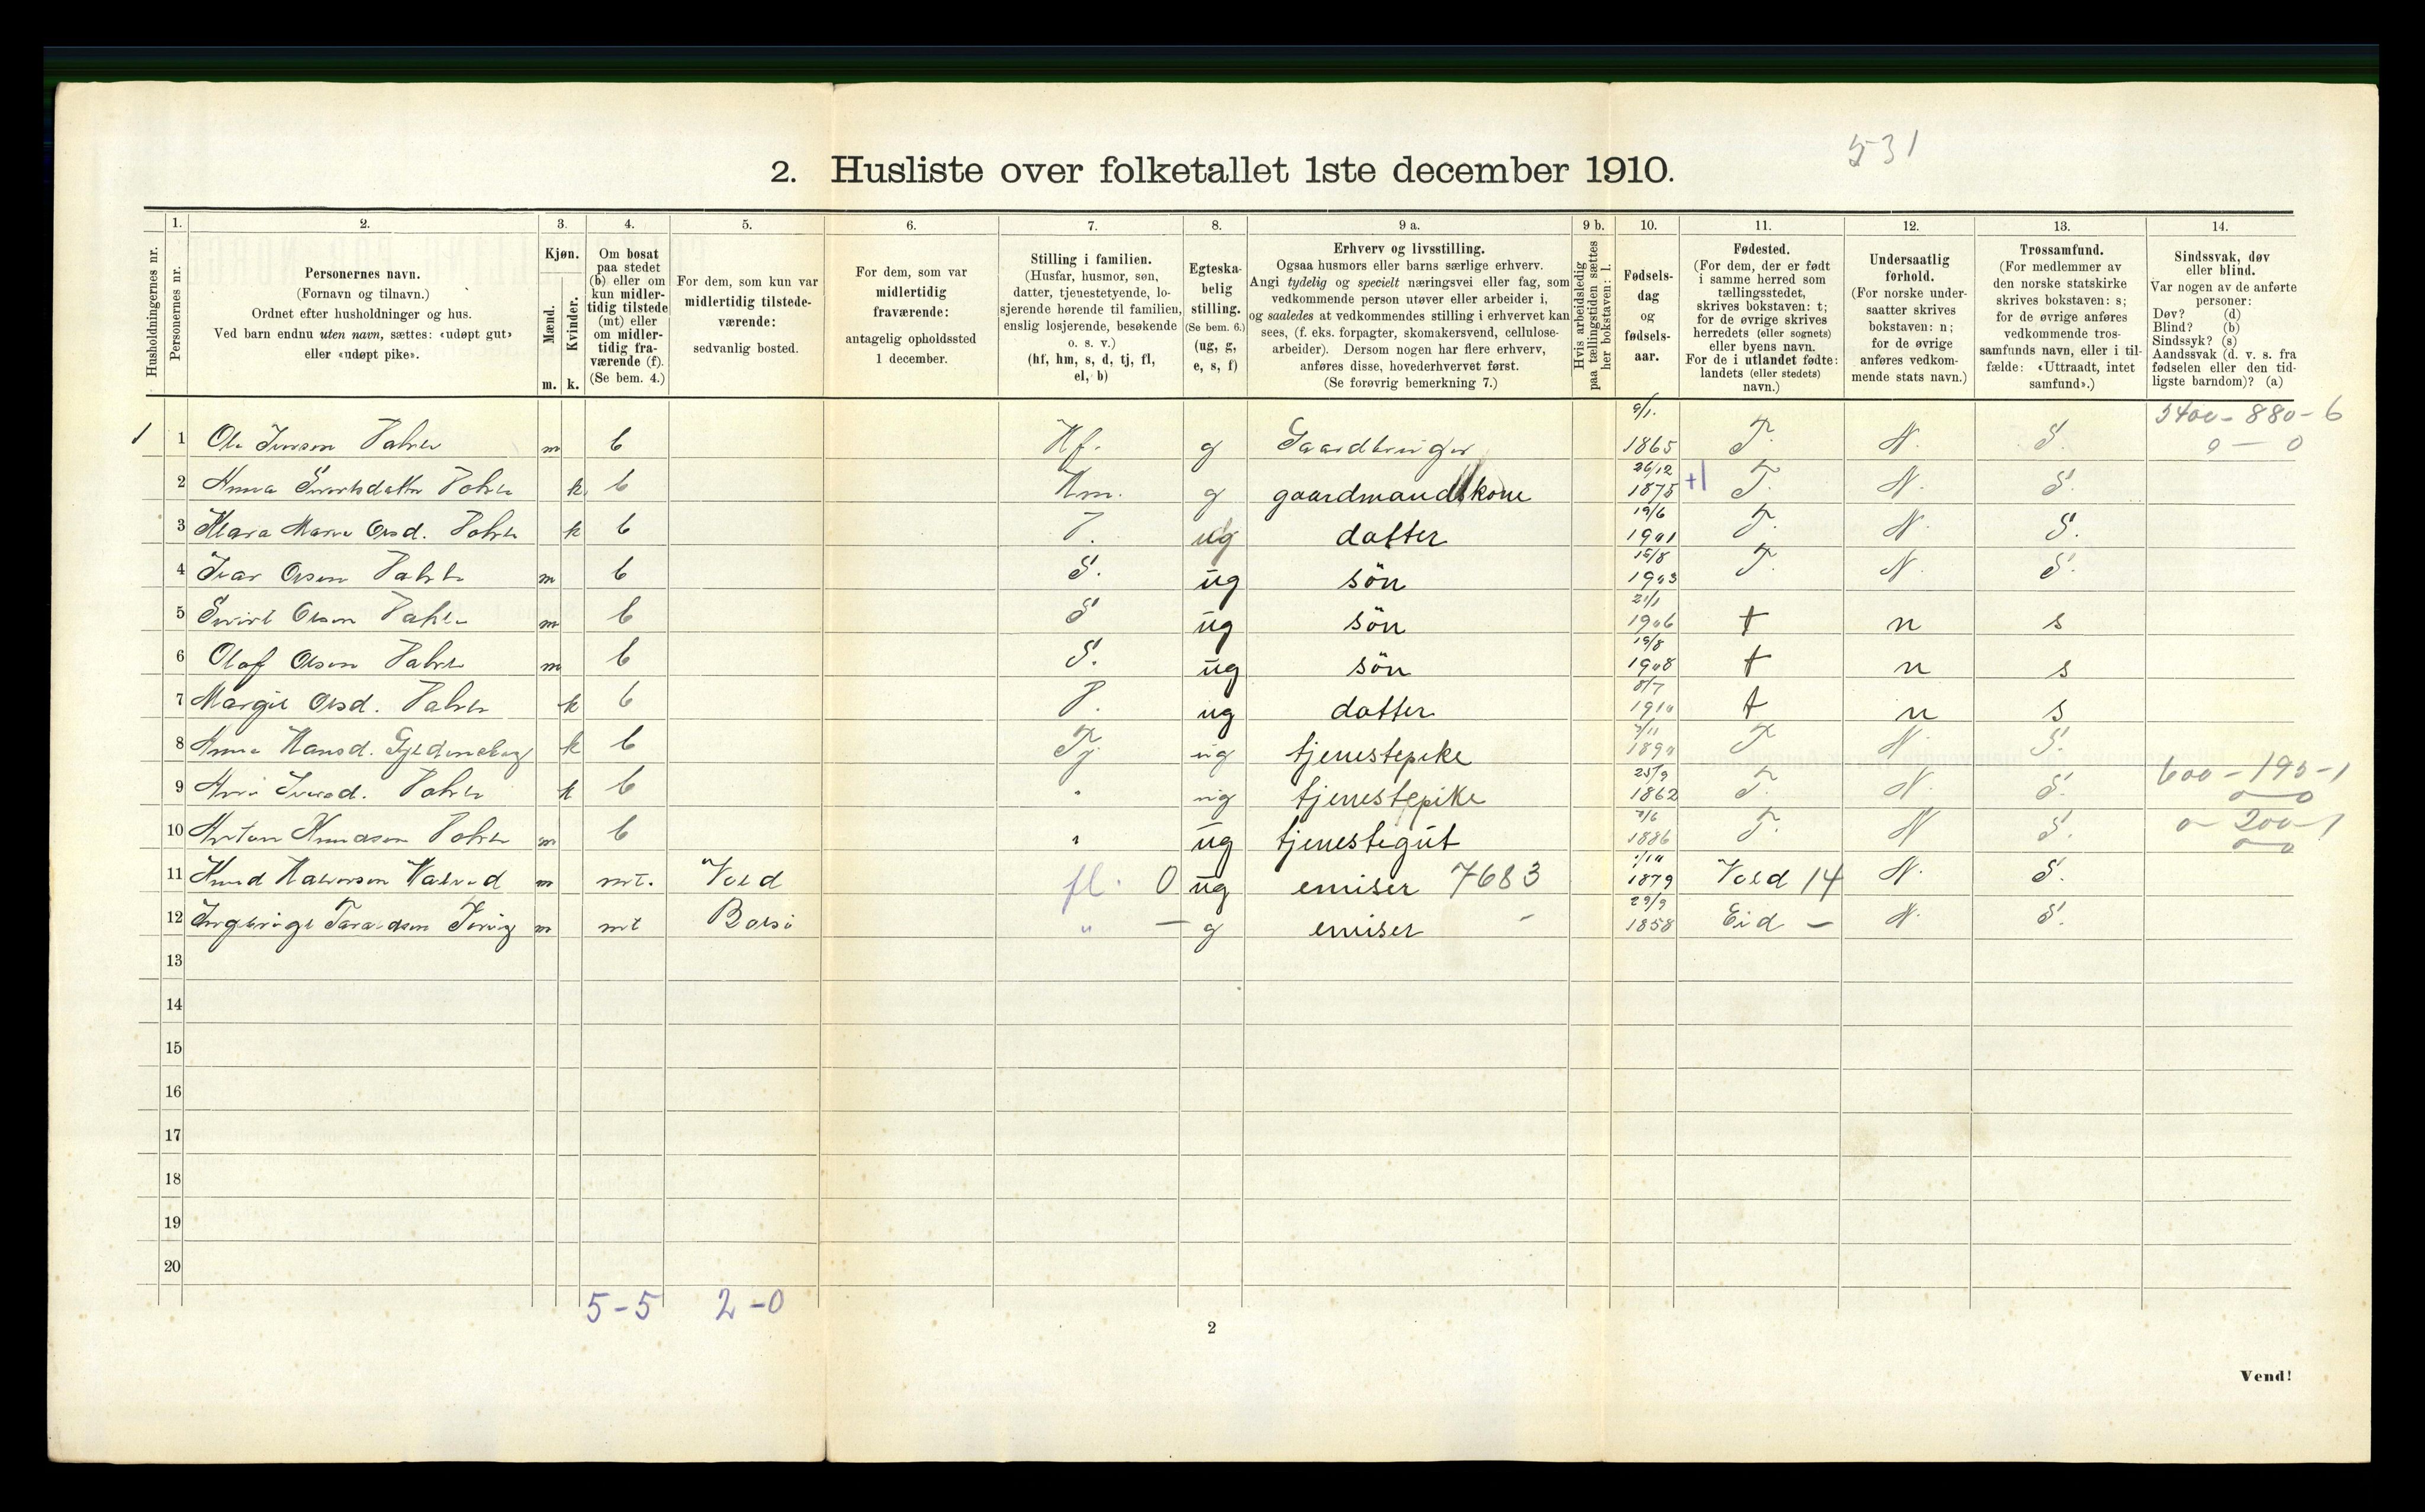 531
2. Husliste over folketallet 1ste december 1910.
1. 2. 3. 4. 5. 6. 7. 8. 9 a. 9 b. 10. 11. 12. 13. 14.
Husholdningernes nr.
Personernes nr.
Personernes navn.
(Fornavn og tilnavn.)
Ordnet efter husholdninger og hus.
Ved barn endnu uten navn, sættes: «udøpt gut»
eller «udøpt pike».
Kjøn.
Mænd.
Kvinder.
m. k.
Om bosat
paa stedet
(b) eller om
kun midler-
tidig tilstede
(mt) eller
om midler-
tidig fra-
værende (f).
(Se bem. 4.)
For dem, som kun var
midlertidig tilstede-
værende:
sedvanlig bosted.
For dem, som var
midlertidig
fraværende:
antagelig opholdssted
1 december.
Stilling i familien.
(Husfar, husmor, søn,
datter, tjenestetyende, lo-
sjerende hørende til familien,
enslig losjerende, besøkende
o. s. v.)
(hf, hm, s, d, tj, fl,
el, b)
Egteska-
belig
stilling.
(Se bem. 6.)
(ug, g,
e, s, f)
Erhverv og livsstilling.
Ogsaa husmors eller barns særlige erhverv.
Angi tydelig og specielt næringsvei eller fag, som
vedkommende person utøver eller arbeider i,
og saaledes at vedkommendes stilling i erhvervet kan
sees, (f. eks. forpagter, skomakersvend, cellulose-
arbeider). Dersom nogen har flere erhverv,
anføres disse, hovederhvervet først.
(Se forøvrig bemerkning 7.)
Hvis arbeidsledig
paa tællingstiden sættes
her bokstaven: l.
Fødsels-
dag
og
fødsels-
aar.
Fødested.
(For dem, der er født
i samme herred som
tællingsstedet,
skrives bokstaven: t;
for de øvrige skrives
herredets (eller sognets)
eller byens navn.
For de i utlandet fødte:
landets (eller stedets)
navn.)
Undersaatlig
forhold.
(For norske under-
saatter skrives
bokstaven: n;
for de øvrige
anføres vedkom-
mende stats navn.)
Trossamfund.
(For medlemmer av
den norske statskirke
skrives bokstaven: s;
for de øvrige anføres
vedkommende tros-
samfunds navn, eller i til-
fælde: «Uttraadt, intet
samfund».)
Sindssvak, døv
eller blind.
Var nogen av de anførte
personer:
Døv? (d)
Blind? (b)
Sindssyk? (s)
Aandssvak (d. v. s. fra
fødselen eller den tid-
ligste barndom)? (a)
1 1 m b Hf. g Gaardbruger 1865 T. N. S. 5400-880-6 0-0
2 Anna k b Hm. g gaardmandskone 26/12 1875 +1 T. N. S.
3 Klara k b ug datter 19/6 1901 T. N. S.
4 Ivar Olsen m b S. ug sön 15/8 1903 T. N. S.
5 Olsen m b S ug sön 21/1 1906 t n s
6 Olaf Olsen m b S. ug sön 15/8 1908 t n s
7 Margit Olsd. k b ug datter 8/7 1910 t n s
8 Anna Hansd. k b Tj ug tjenestepike T N S.
9 k b " ug tjenestepike 25/9 1862 T. N. S. 600-195-1 0-0
10 Anton Knudsen m b " ug tjenestegut 1886 T. N S. 0-200-1 0-0
11 Knud Halvorsen m mt. Vold fl. 0 ug emiser 7683 1879 Vold 14 N. S.
12 m mt Bolsö " - g emiser - 29/9 1858 Eid - N. S.
13
14
15
16
17
18
19
20
5-5 2-0
2
Vend!